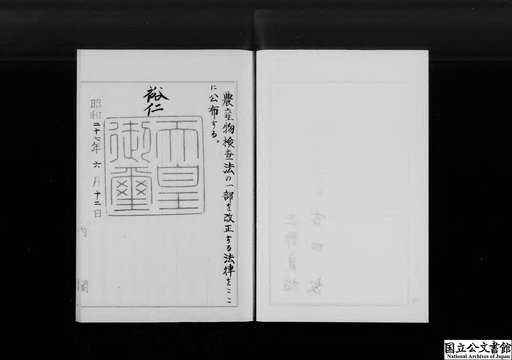 農産物検査法の一部を改正する法律をここ
に公布する。
裕仁
天皇
御璽
昭和二十七年六月十三日
内閣
国立公文書館
National Archives of Japan